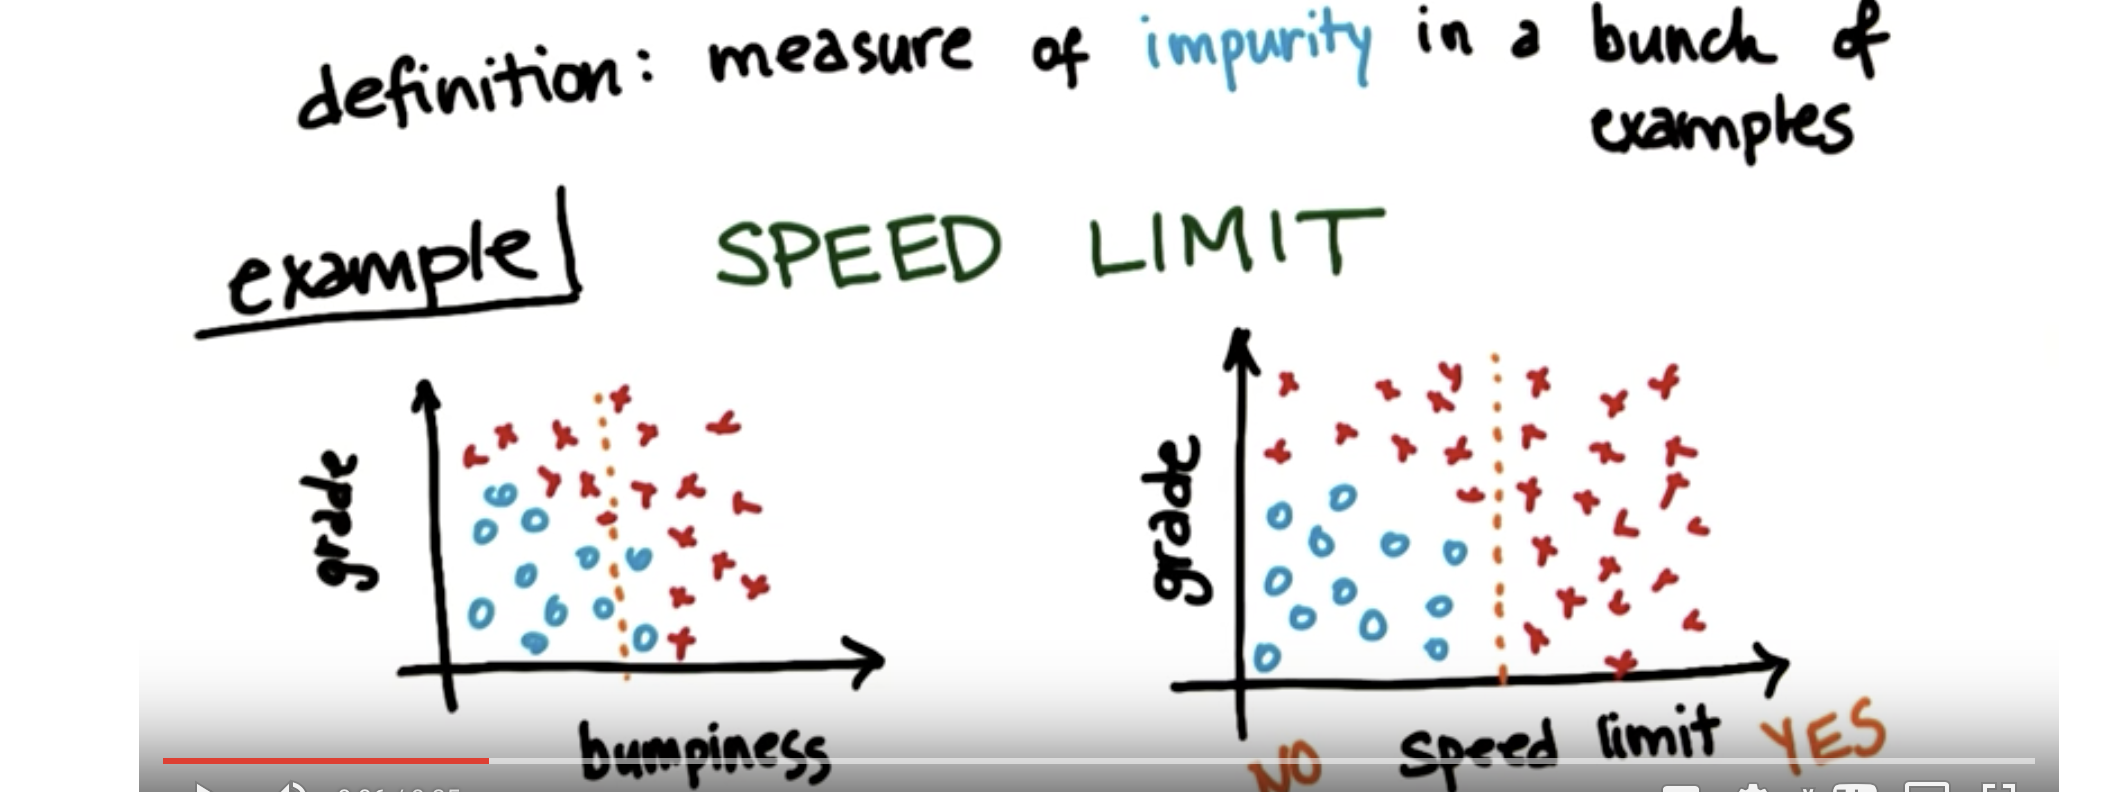 definition: measure of impurity in a bunch of
examples
example SPEED LIMIT
grade
bumpiness
grade
NO speed limit YES